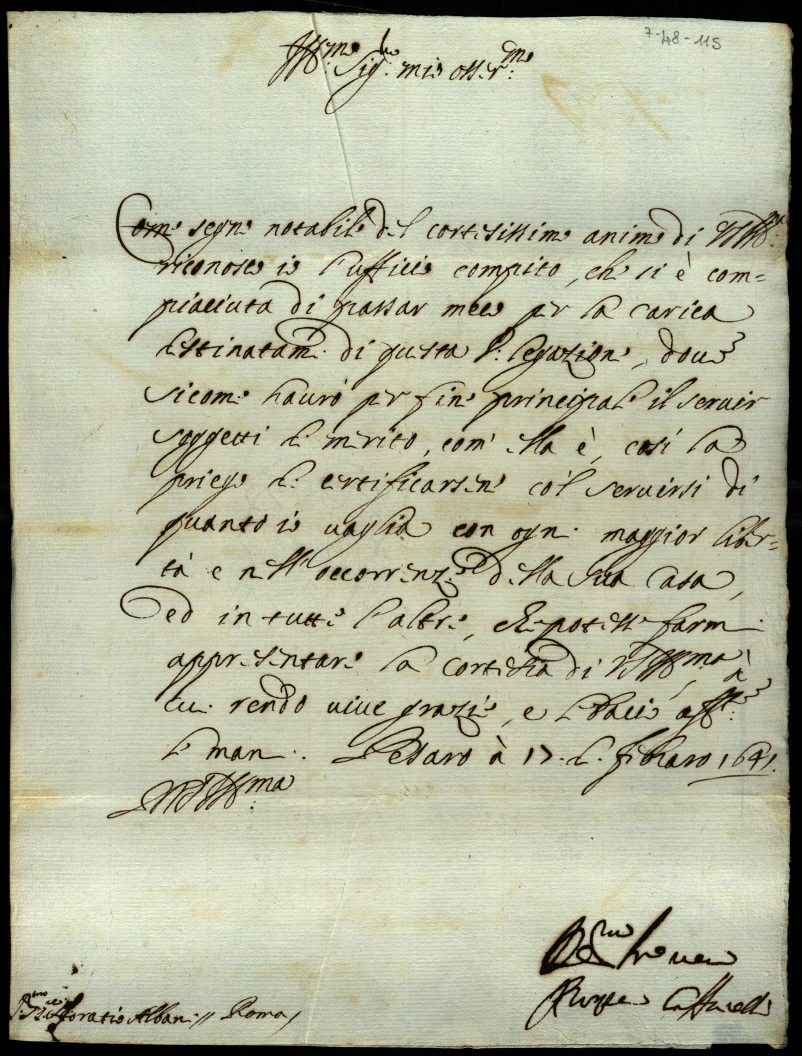 7-48-115
Ill.mo Sig.re mio oss.mo
Come segno notabile del cortesissimo animo di V.S. Ill.ma
riconosco io l'ufficio compito, che si è com=
piaciuta di passar meco per la carica
destinatami di questa legazione, dove
sicome haurò per fine principale il servir
soggetti di merito, com' ella è, così la
priego di certificarsene co'l servirsi di
quanto io vaglia con ogni maggior liber=
tà e nell' occorrenze della sua casa,
ed in tutte l'altre, che potesse farmi
appresentare la cortesia di V.S. Ill.ma, à
cui rendo vive grazie, e le bacio aff.te
le mani. Pesaro à 17. di febraro 1641.
Di V.S. Ill.ma
S.r Horatio Albani // Roma
Caffarelli